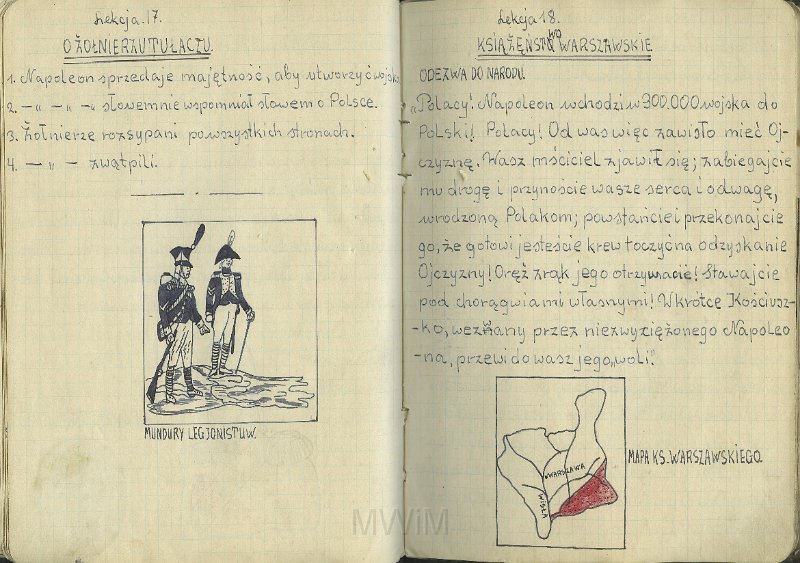 Lekcja.17.
O ŻOŁNIERZU TUŁACZU.
1. Napoleon sprzedaje majętność, aby utworzyć wojsko
2. — „ — „ — „ słowemnie wspomniał słowem o Polsce.
3. Żołnierze rozsypani powszystkich stronach.
4. — „ — zwątpili.
MUNDURY LEGJONISTUW.
Lekcja 18.
KSIĄŻĘNSTWO WARSZAWSKIE
ODEZWA DO NARODU.
„Polacy! Napoleon wchodzi w 300.000 wojska do
Polski! Polacy! Od was więc zawisło mieć Oj-
czyznę. Wasz mściciel zjawił się; zabiegajcie
mu drogę i przynoście wasze serca i odwagę,
wrodzoną Polakom; powstańcie i przekonajcie
go, że gotowi jesteście krew toczyć na odzyskanie
Ojczyzny! Oręż z rąk jego otrzymacie! Stawajcie
pod chorągwiami własnymi! Wkrótce Kościusz-
-ko, wezwany przez niezwyciężonego Napoleo
-na, przewi do was z jego „woli".
WARSZAWA
WISŁA
MAPA KS. WARSZAWSKIEGO.
MWiM